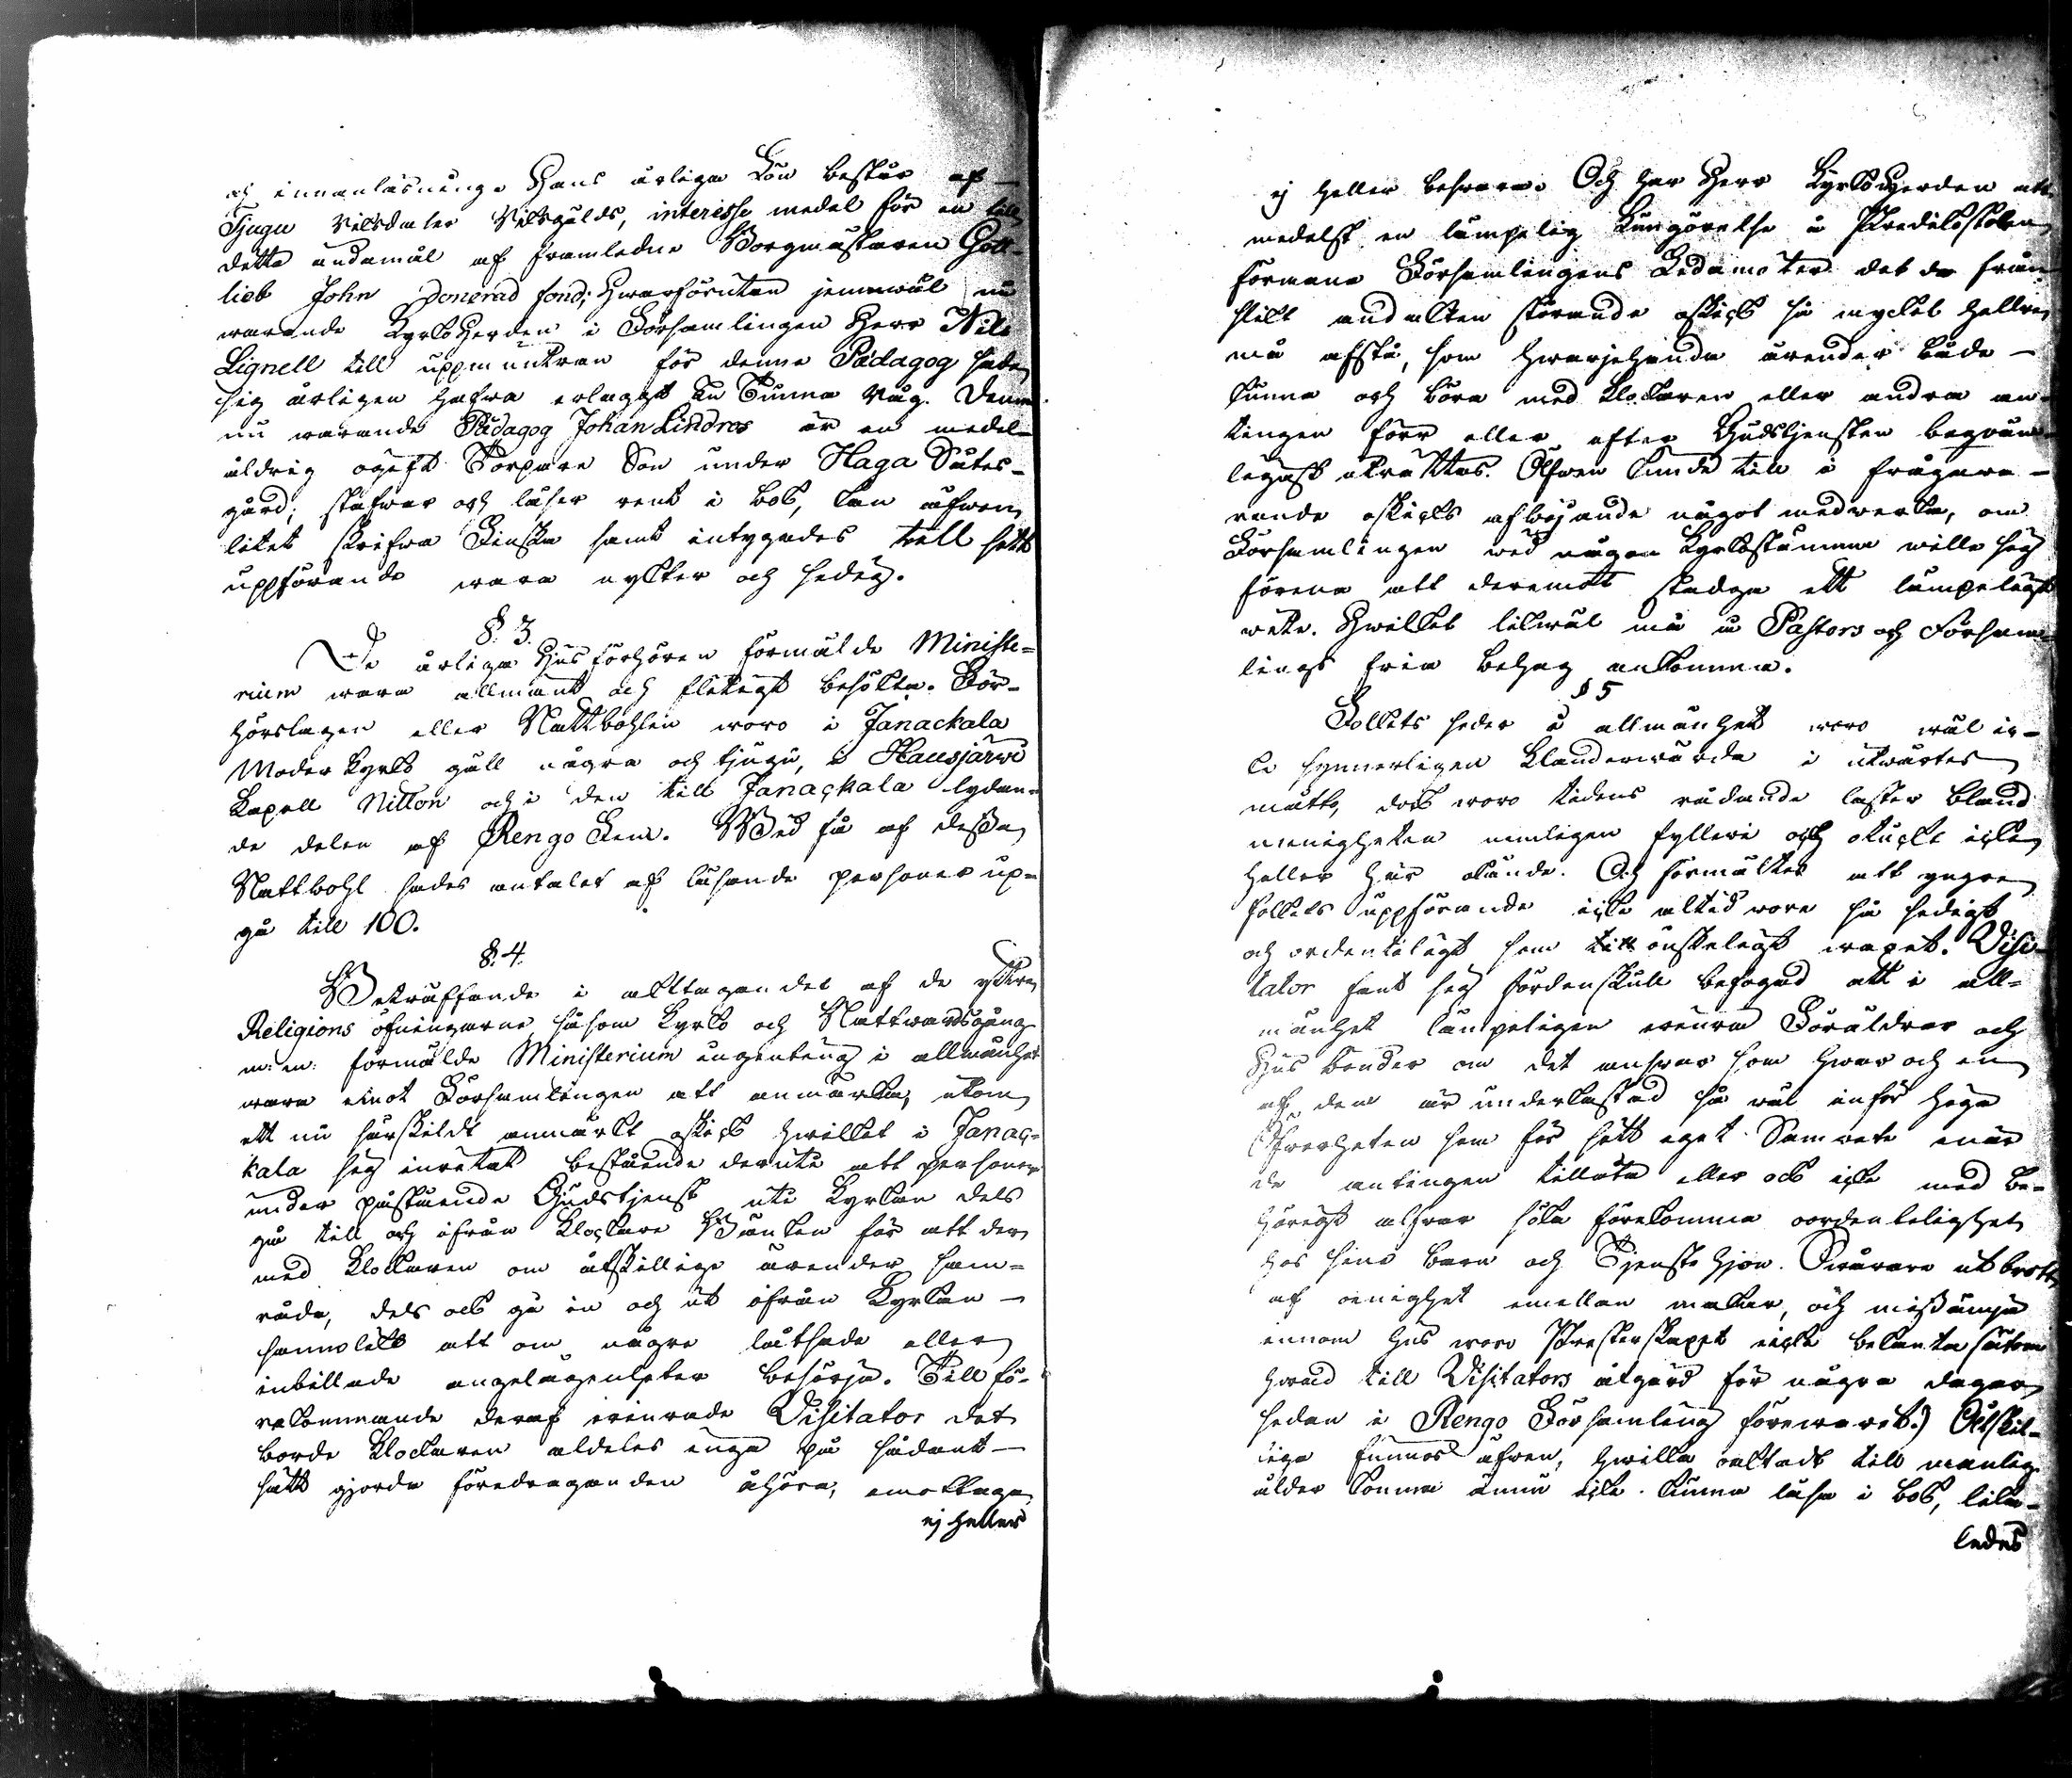 och innanläsning. Hans årliga Lön består af
Tjugu riksdaler Riksgälds, interesse medel för en till
detta ändamål af framledne Borgmästaren Gott-
lieb John Donerad fond; hwarförutan jemnwäl nu
warande Kyrkoherden i Församlingen Herr Nils
Lignell till uppmuntran för denne Pædagog sade
sig årligen hafwa erlagt En Tunna råg. Denne
nu warande Pædagog Johan Lindros är en medel-
åldrig ogift Torpare Son under Haga Säteri-
gård; stafwar och läser rent i bok, kan äfwen
litet skrifwa Finska samt intygades till sitt
uppförande wara nykter och sedig.
§. 3.
De årliga Husförhören förmälde Ministe-
rium wara allmänt och flitigt besökta. För-
hörslagen eller Nattbohlen woro i Janackala
Moder Kyrko gäll några och tjugu, i Hausjärwi
Kapell Nitton och i den till Janackala lydan-
de delen af Rengo Fem. Wid få af dessa
Nattbohl sades antalet af läsande personer up-
gå till 100.
§. 4.
Beträffande i akttagandet af de yttre
Religions öfningarne, såsom Kyrko och Nattwardsgång
m: m: förmälde Ministerium ingenting i allmänhet
wara emot Församlingen att anmärka, utom
ett nu särskildt anmärkt oskick hwilket i Janac-
kala sig inritat bestående deruti att personer
under påstående Gudstjenst uti Kyrkan dels
gå till och ifrån Klockare Bänken för att der
med Klockaren om åtskillige ärender sam-
råda, dels ock gå in och ut ifrån Kyrkan
sannolikt att om några låtsade eller
inbillade angelägenheter besörja. Till fö-
rekommande deraf erinrade Visitator det
borde Klockaren aldeles inga på sådant
sätt gjorda föredraganden åhöra, emottaga
ej heller
ej heller beswara. Och har Herr Kyrkoherden att
medelst en lämpelig kungörelse å Predikostolen
förmana Församlingens Ledamöter det de från
slikt andakten störande oskick så mycket hellre
må afstå, som hwarjehanda ärender både
kunna och böra med Klockaren eller andra an-
tingen förr eller efter Gudstjensten beqwäm-
ligast uträttas. Äfwen kunde till i frågawa-
rande oskicks afböjande något medwerka, om
Församlingen wid någon Kyrkostämma wille sig
förena att deremot stadga ett lämpeligt
wite. Hwilket likwäl må å Pastors och Försam-
lings fria behag ankomma.
§ 5
Folkets seder i allmänhet woro wäl ic-
ke synnerligen klanderwärda i utwärtes
måtto, dock woro tidens rådande laster bland
menigheten nemligen fylleri och otuckt icke
heller här okände. Och förmältes att yngre
folkets uppförande icke altid wore så sedigt
och ordentligt som till önskeligt waret. Visi-
tator fant sig fördenskull befogad att i all-
mänhet lämpeligen erinra Föräldrar och
Husbönder om det answar som hwar och en
af dem är underkastad så wäl inför höga
Öfwerheten som för sitt eget Samwete enär
de antingen tillåta eller ock icke med be-
hörigt alfwar söka förekomma oordentelighet
hos sina barn och Tjenste hjon. Swårare utbrott
af oenighet emellan makar, och missämja
innom hus woro Presterskapet icke bekanta (utom
hwad till Visitators åtgärd för några dagar
sedan i Rengo Församling förewarit.) Åtskil-
lige funnos äfwen, hwilka oaktadt till manlig
ålder komma ännu icke kunna läsa i bok, lika-
ledes